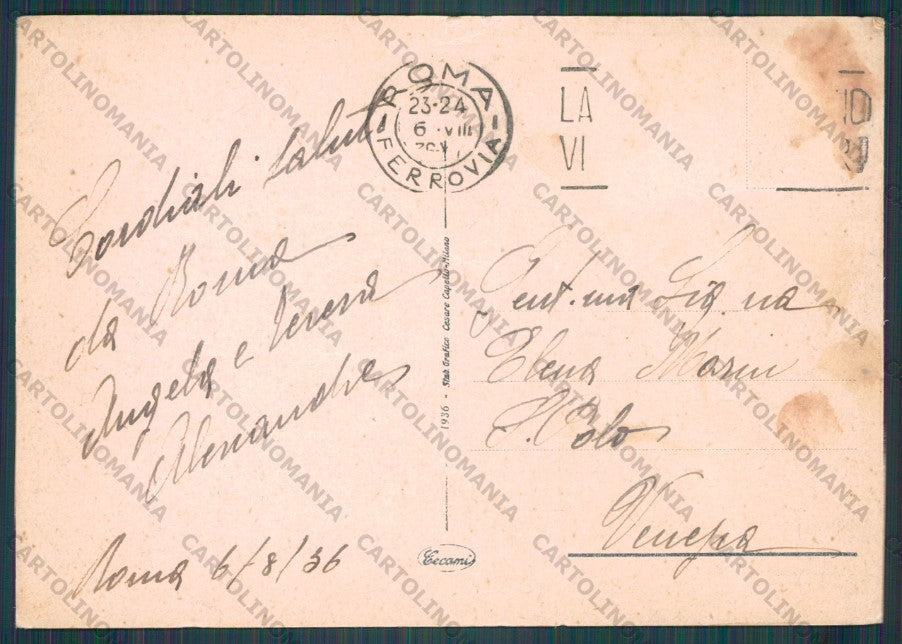 ROMA
FERROVIA
23-24
6 VIII
LA
VI
Cordiali saluti
da Roma
Angela e Teresa
Roma 6/8/36
Gent.ma Sig.na
Elena Marin
S. Polo
Venezia
1936 - Stab. Grafico Cesare Capello-Milano
Cecami
CARTOLINOMANIA